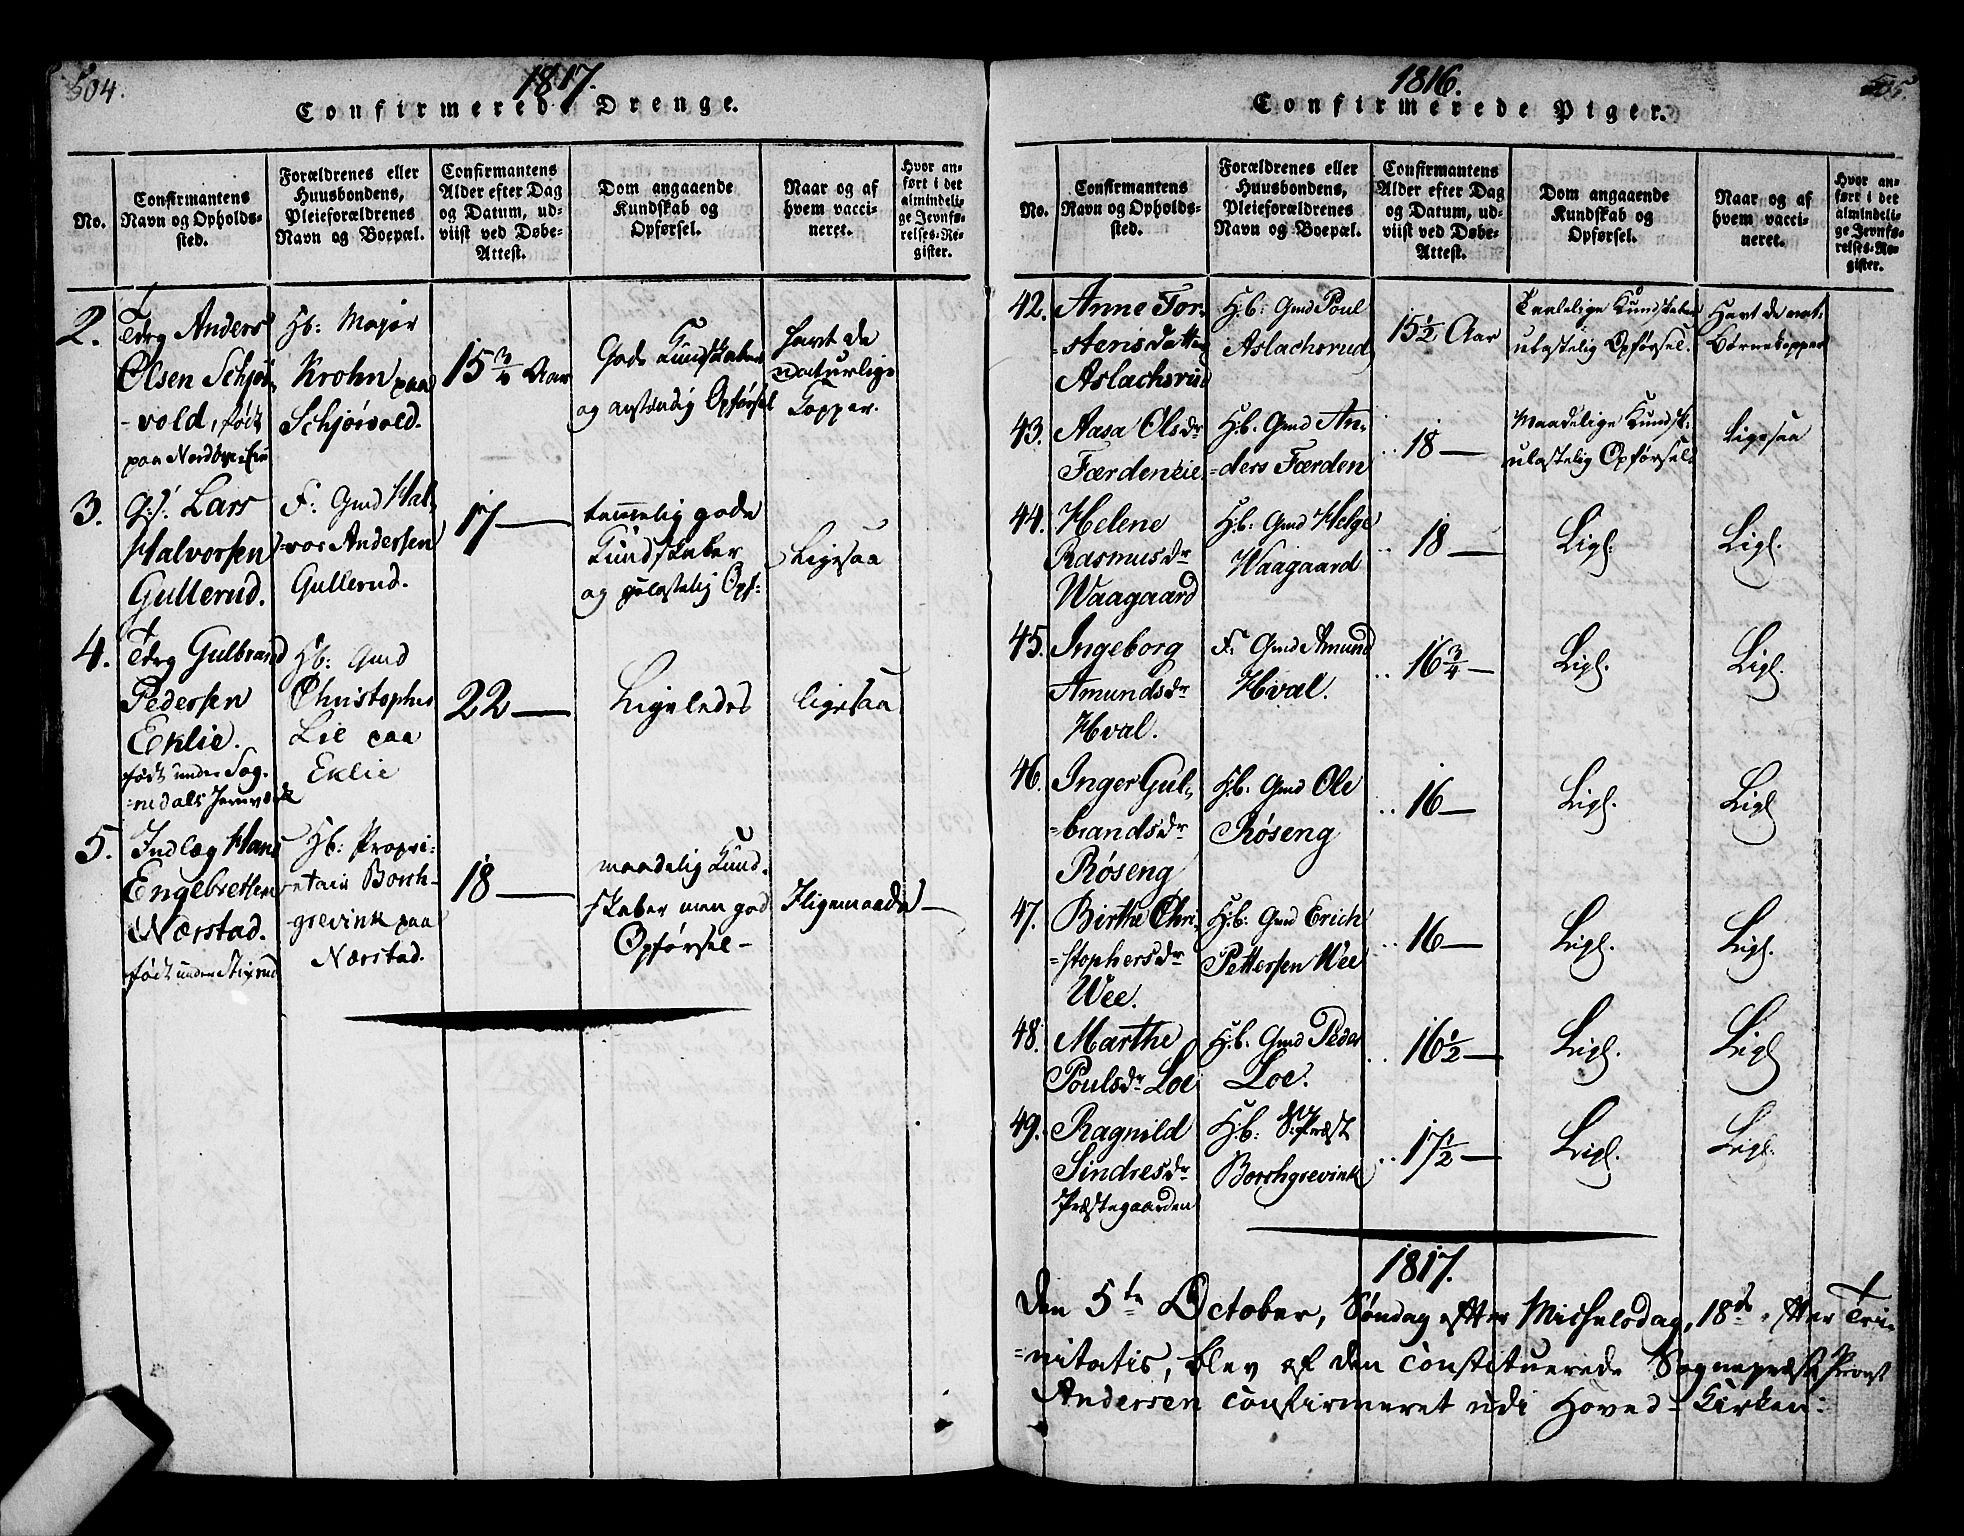 504.
1817.
Confirmerede Drenge.
No.
Confirmantens
Navn og Opholds-
sted.
Forældrenes eller
Huusbondens,
Pleieforældrenes
Navn og Boepæl.
Confirmantens
Alder efter Dag
og Datum, ud-
viist ved Døbe-
Attest.
Dom angaaende
Kundskab og
Opførsel.
Naar og af
hvem vacci-
neret.
Hvor an-
ført i det
almindeli-
ge Jevnfø-
relses-Re-
gister.
2.
Tdrg Anders
Olsen Schjør-
-vold, født
paa Nordbye
Hb: Major
Krohn paa
Schjørvold.
15 3/4 Aar
Gode Kundskaber
og anstændig Opførsel
havt de
naturlige
Kopper.
3.
Lars
Halvorsen
Gullerud.
F: Gmd Hal-
-vor Andersen
Gullerud.
17 —
temmelig gode
Kundskaber
og ulastelig Opf:
Ligesaa
4.
Tdrg Gulbrand
Pedersen
Eklie.
født under Sog-
=nedals Jernværk
Hb: Gmd
Christopher
Lie paa
Eklie
22 —
Ligeledes
ligesaa
5.
Indlæg Hans
Engebretsen
Nærstad.
født under
Hb: Propri-
etair Borch-
grevink paa
Nærstad.
18 —
maadelig Kund-
skaber men god
Opførsel —
Iligemaade —
505.
1816.
Confirmerede Piger.
No.
Confirmantens
Navn og Opholds-
sted.
Forældrenes eller
Huusbondens,
Pleieforældrenes
Navn og Boepæl.
Confirmantens
Alder efter Dag
og Datum, ud-
viist ved Døbe-
Attest.
Dom angaaende
Kundskab og
Opførsel.
Naar og af
hvem vacci-
neret.
Hvor an-
ført i det
almindeli-
ge Jevnfø-
relses-Re-
gister.
42.
Anne Tor-
=stensdatter
Aslachsrud
H.b: Gmd Poul
Aslachsrud
15 1/2 Aar
Taalelige Kundskaber
ulastelig Opførsel.
Havt de nat:
Børnekopper
43.
Aasa Olsdr
Færdeneie
H.b. Gmd An-
=ders Færden
18 —
Maadelige Kundsk:
ulastelig Opførsel
Ligesaa
44.
Helene
Rasmusdr
Waagaard
H.b: Gmd Helge
Waagaard
18 —
Ligl.
Ligl.
45.
Ingeborg
Amundsdr
Hval.
F: Gmd Amund
Hval.
16 3/4 —
Ligl.
Ligl.
46.
Inger Gul-
=brandsdr
Røseng
H.b: Gmd Ole
Røseng
16 —
Ligl.
Ligl
47.
Birthe Chri-
=stophersdr
Wee.
H.b: Gmd Erich
Pettersen Wee
16 —
Ligl.
Ligl.
48.
Marthe
Poulsdr Loe
H.b: Gmd Peder
Loe.
16 1/2 —
Ligl.
Ligl
49.
Ragnild
Sindresdr
Præstegaarden
H.b: S:Præst
Borchgrevink
17 1/2 —
Ligl.
Ligl.
1817.
Den 5te October, Søndag efter Michelsdag, 18de efter Tri-
=nitatis, blev af den constituerede Sognepræst Provst
Andersen confirmeret udi Hoved-Kirken: